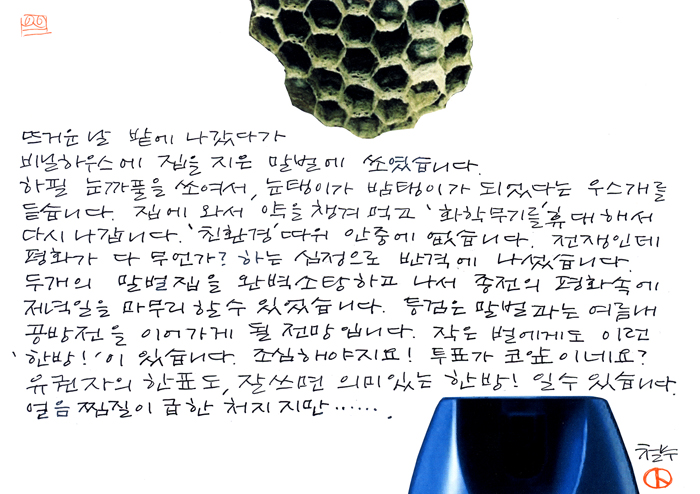 뜨거운 날 밭에 나갔다가
비닐하우스에 집을 지은 말벌에 쏘였습니다.
하필 눈까풀을 쏘여서, 눈탱이가 밤탱이가 되었다는 우스개를
듣습니다. 집에 와서 약을 챙겨 먹고 '화학무기를' 휴대해서
다시 나갑니다. '친환경' 따위 안중에 없습니다. 전쟁인데
평화가 다 무언가? 하는 심정으로 반격에 나섰습니다.
두개의 말벌집을 완벽소탕하고 나서 종전의 평화속에
저녁일을 마무리 할 수 있었습니다. 등검은 말벌과는 여름내
공방전을 이어가게 될 전망입니다. 작은 벌에게도 이런
'한방!'이 있습니다. 조심해야지요! 투표가 코앞이네요?
유권자의 한표도, 잘쓰면 의미있는 한방! 일수 있습니다.
얼음찜질이 급한 처지지만…….
철수